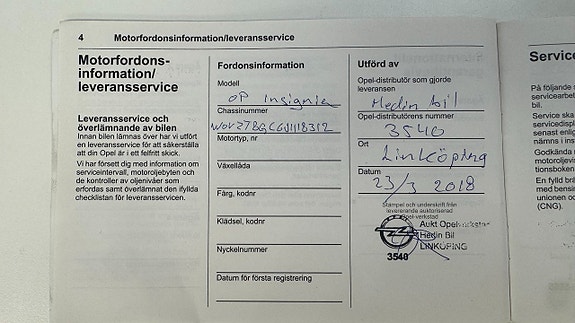 4 Motorfordonsinformation/leveransservice
Motorfordons-
information/
leveransservice
Leveransservice och
överlämnande av bilen
Innan bilen lämnas över har vi utfört
en leveransservice för att säkerställa
att din Opel är i ett felfritt skick.
Vi har försett dig med information om
serviceintervall, motoroljebyten och
de kontroller av oljenivåer som
erfordas samt överlämnat den ifyllda
checklistan för leveransservicen.
Fordonsinformation
Modell
OP Insignia
Chassinummer
Motortyp, nr
Växellåda
Färg, kodnr
Klädsel, kodnr
Nyckelnummer
Datum för första registrering
Utförd av
Opel-distributör som gjorde
leveransen
Hedin bil
Opel-distributörens nummer
3540
Ort
Linköping
Datum
23/3 2018
Stämpel och underskrift från
levererande auktoriserad
Opel-verkstad
Aukt Opelverkstad
Hedin Bil
LINKÖPING
3540
Service
På följande
servicearbe
bil.
Service ska
servicedisp
senast enlig
nämns i ins
Godkända
motoroljevi
tionsboken
En fylld brä
med bensin
unionen o
(CNG).